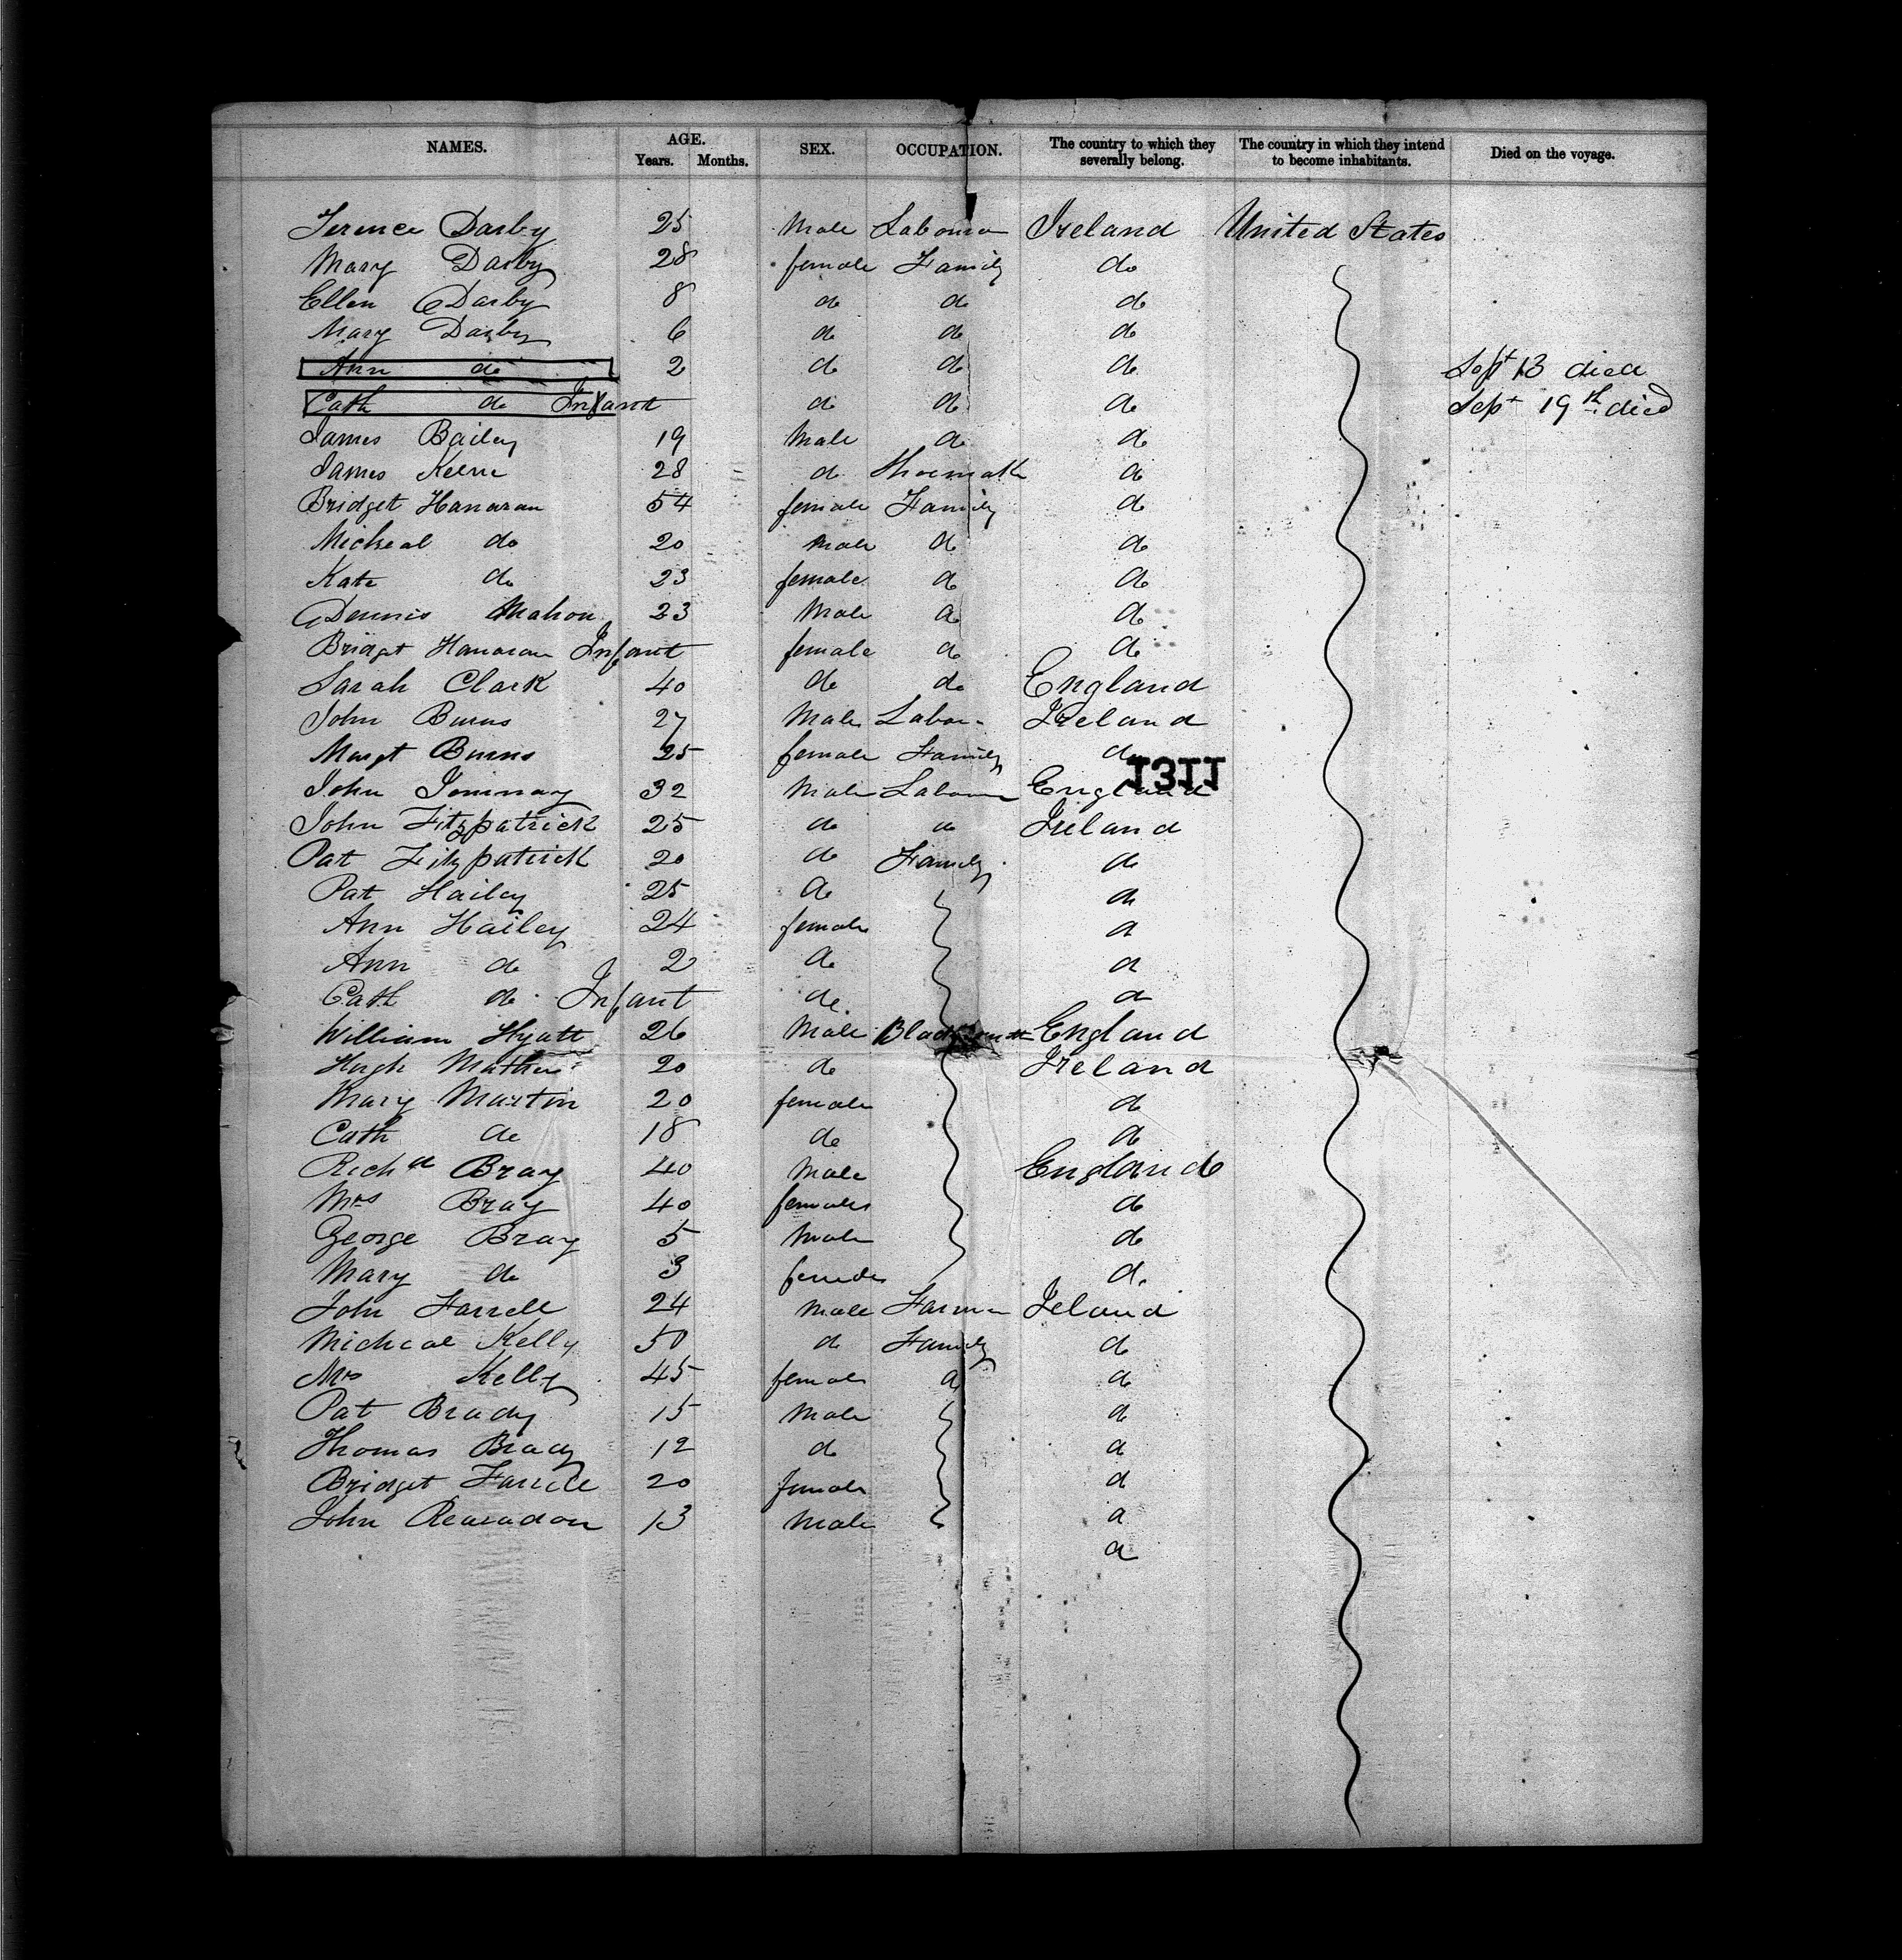 NAMES. AGE. Years. Months. SEX. OCCUPATION. The country to which they severally belong. The country in which they intend to become inhabitants. Died on the voyage.
Terence Darby 25 Male Labourer Ireland United States
Mary Darby 28 female Family do
Ellen Darby 8 do do do
Mary Darby 6 do do do
Ann do 2 do do do Sept 13 died
Cath do Infant do do do Sept 19th died
James Bailey 19 Male do do
James Keene 28 do Shoemak do
Bridget Hanaran 54 female Family do
Micheal do 20 Male do do
Kate do 23 female do do
Dennis Mahon 23 Male do do
Bridget Hanaran Infant female do do
Sarah Clark 40 do do England
John Burns 27 Male Labor Ireland
Margt Burns 25 female Family do
1311
John 32 Male Labour England
John Fitzpatrick 25 do do Ireland
Pat Fitzpatrick 20 do Family do
Pat Hailey 25 do do
Ann Hailey 24 female do
Ann do 2 do do
Cath do Infant do do
William Hyatt 26 Male Blacksmith England
Hugh 20 do Ireland
Mary Martin 20 female do
Cath do 18 do do
Richd Bray 40 Male England
Mrs Bray 40 female do
George Bray 5 Male do
Mary do 3 female do
John Farrell 24 Male Farmer Ireland
Micheal Kelly 50 do Family do
Mrs Kelly 45 female do do
Pat Brady 15 Male do
Thomas Brady 12 do do
Bridget Farrell 20 female do
John 13 Male do
do